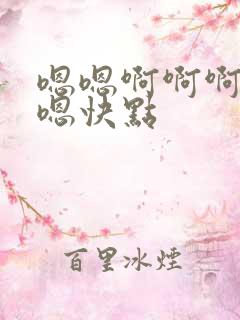 嗯嗯啊啊啊
嗯快點
百里冰煙